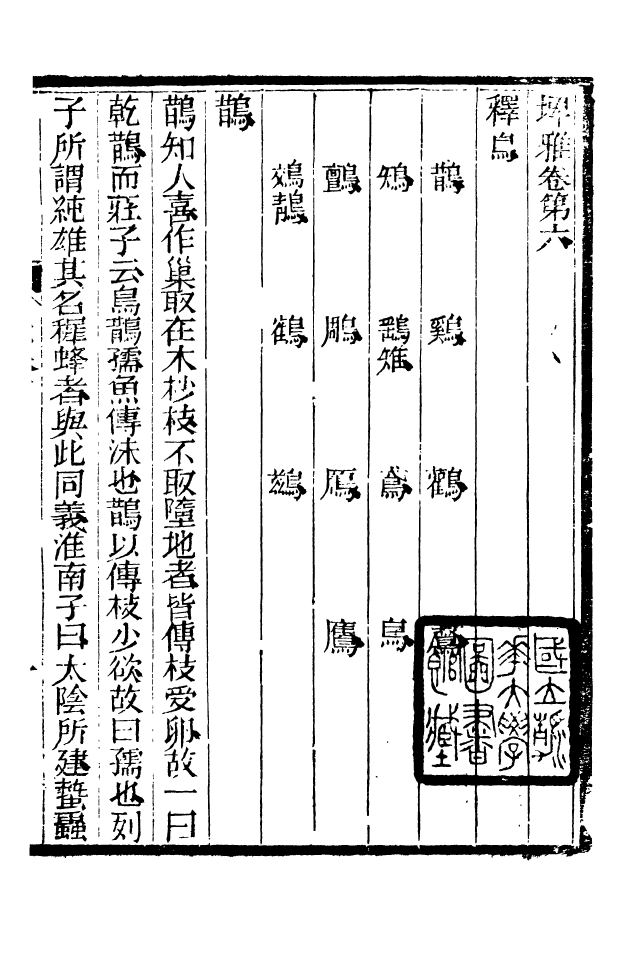 埤雅卷第六
釋鳥
鵲 鷄 鶴
鴙 雉 鳶 烏
鸇 鵰 鴈 鷹
鵁鶄
鵲
鵲知人喜作巢取在木杪枝不取墮地者皆傳枝受卵故一曰
乾鵲而莊子云鳥鵲孺魚傳沫也鵲以傳枝少欲故曰孺也列
子所謂純雄其名穉蜂者與此同義淮南子曰太陰所建蟄蟲
國立清
華大學
圖書
館藏